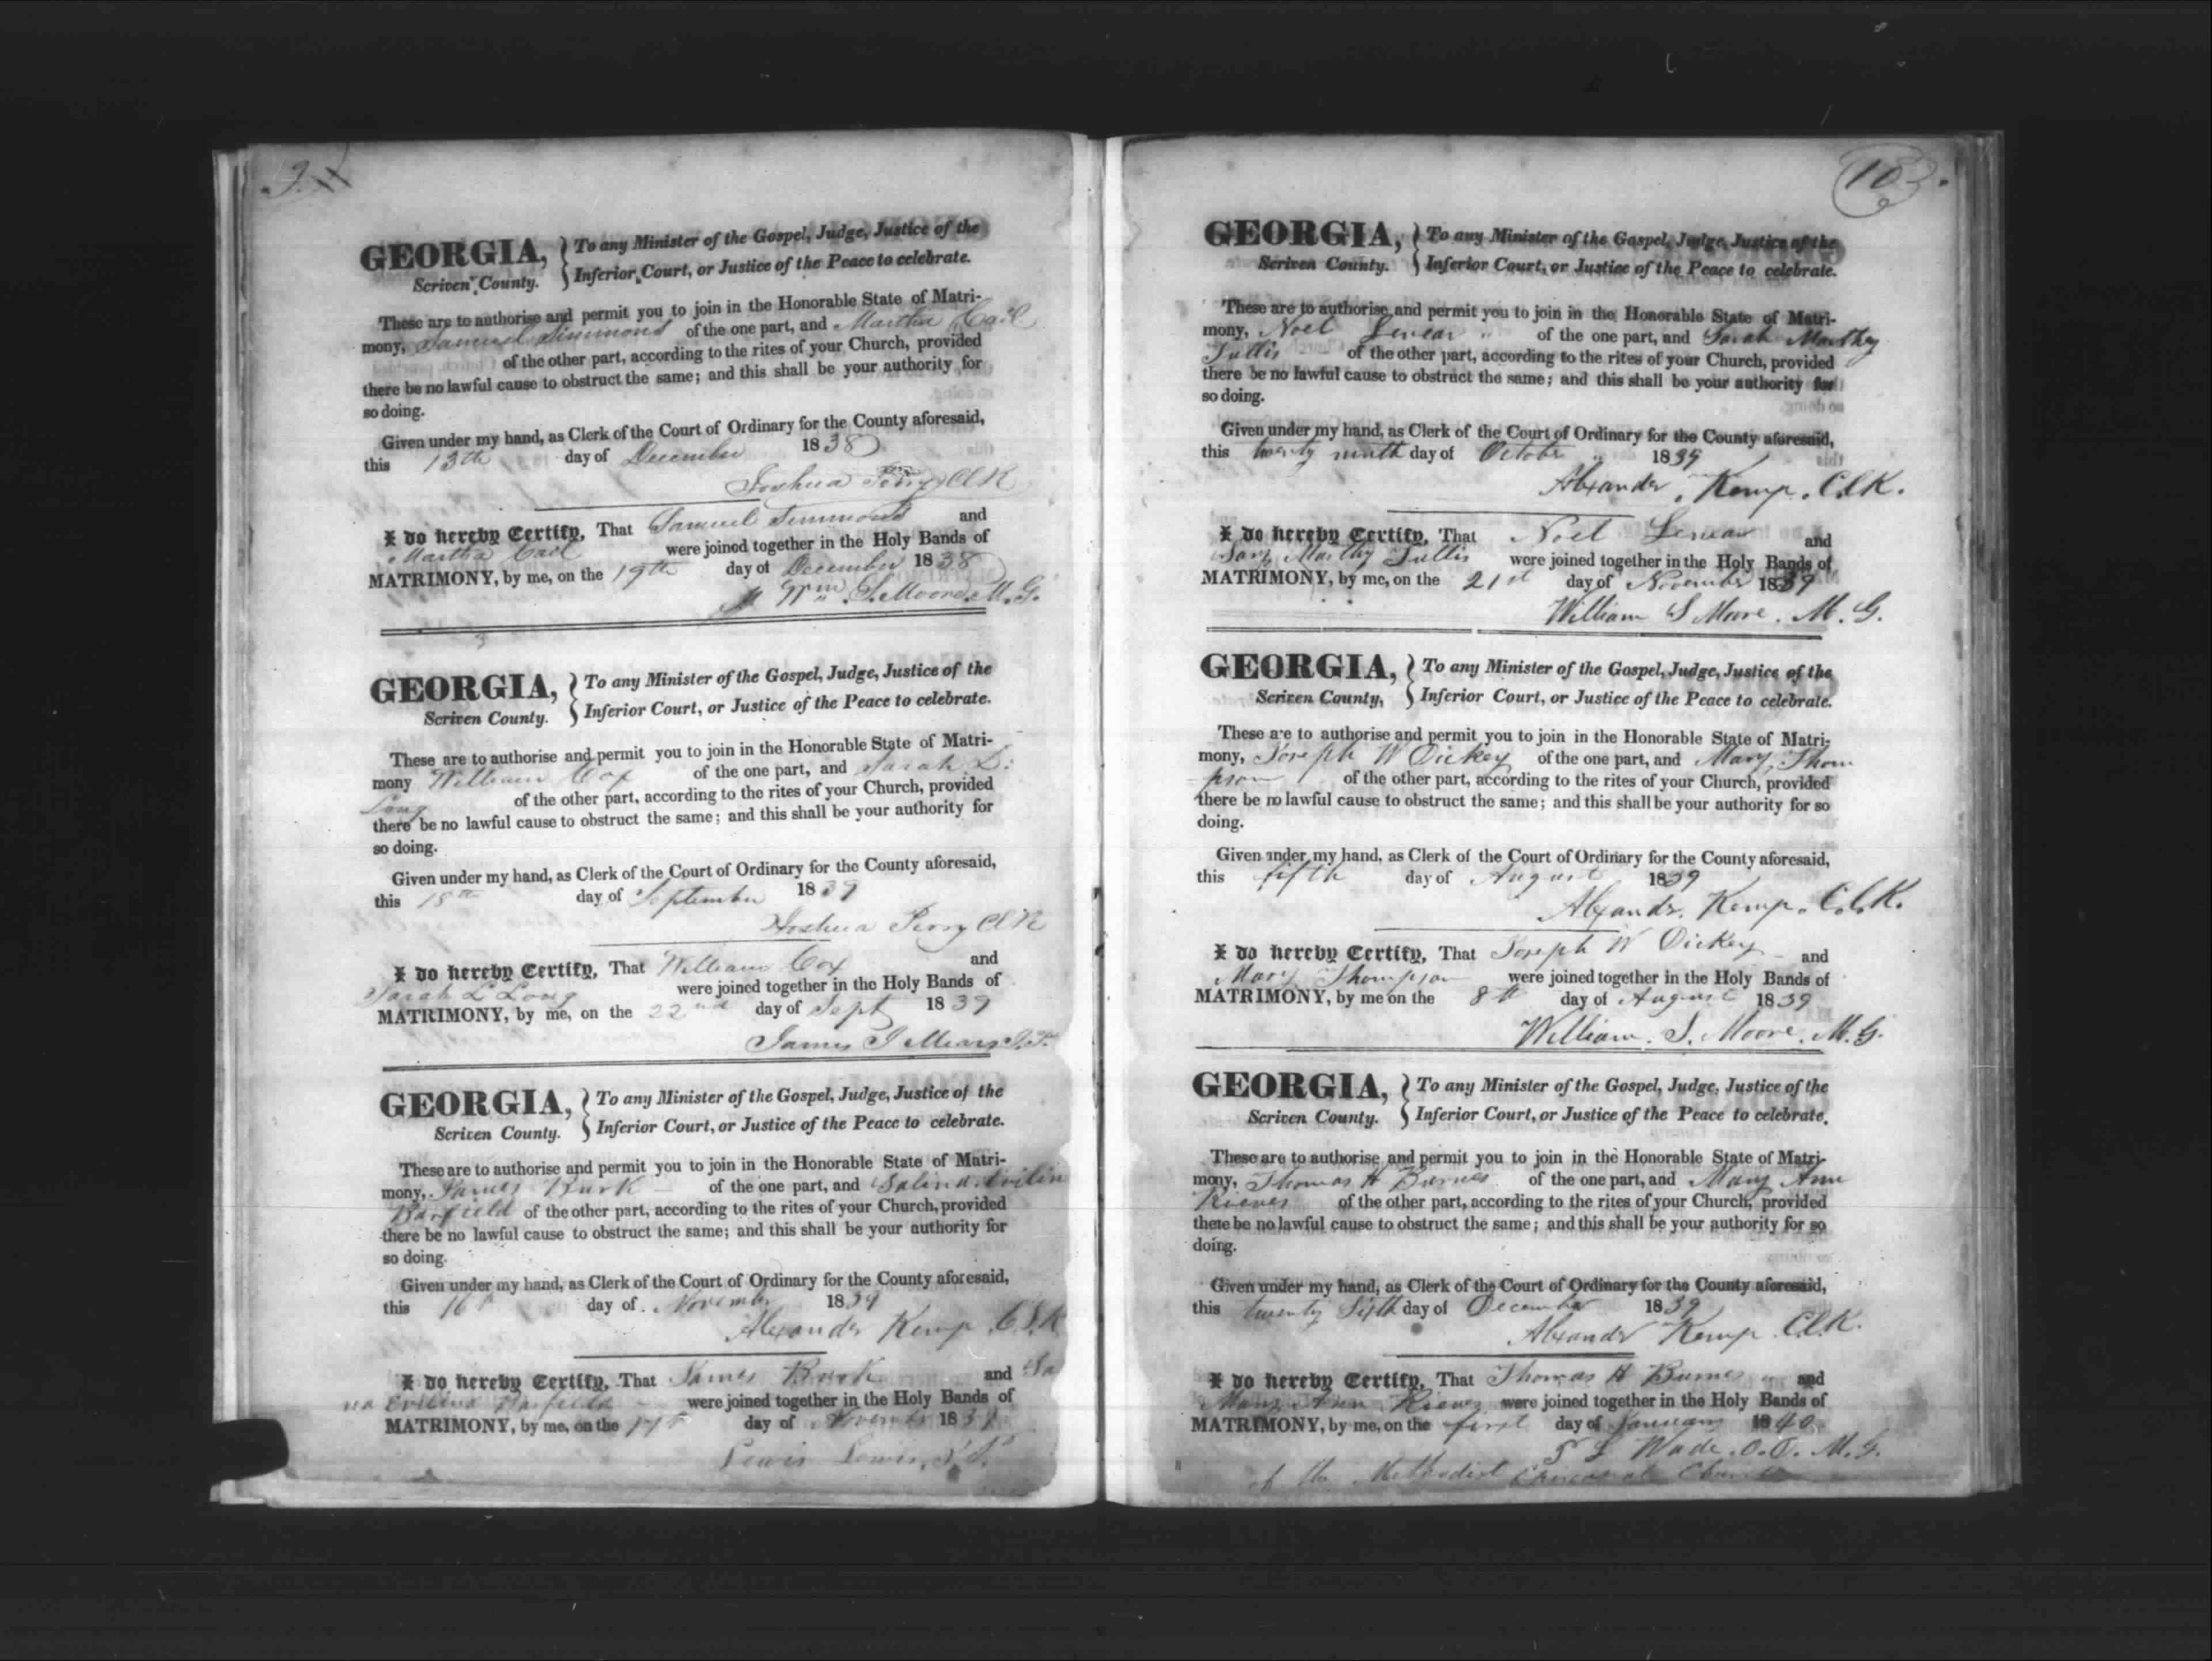 9.
GEORGIA, To any Minister of the Gospel, Judge, Justice of the
Scriven County. Inferior Court, or Justice of the Peace to celebrate.
These are to authorise and permit you to join in the Honorable State of Matri-
mony, Samuel Simmons of the one part, and Martha Cail
of the other part, according to the rites of your Church, provided
there be no lawful cause to obstruct the same; and this shall be your authority for
so doing.
Given under my hand, as Clerk of the Court of Ordinary for the County aforesaid,
this 13th day of December 1838
Joshua Perry Clk
I do hereby Certify, That Samuel Simmons and
Martha Cail were joined together in the Holy Bands of
MATRIMONY, by me, on the 19th day of December 1838
Wm S. Moore M.G.
GEORGIA, To any Minister of the Gospel, Judge, Justice of the
Scriven County. Inferior Court, or Justice of the Peace to celebrate.
These are to authorise and permit you to join in the Honorable State of Matri-
mony William Cox of the one part, and Sarah L.
Long of the other part, according to the rites of your Church, provided
there be no lawful cause to obstruct the same; and this shall be your authority for
so doing.
Given under my hand, as Clerk of the Court of Ordinary for the County aforesaid,
this 18th day of September 1839
Joshua Perry Clk
I do hereby Certify, That William Cox and
Sarah L Long were joined together in the Holy Bands of
MATRIMONY, by me, on the 22nd day of Sept 1839
James J Mears
GEORGIA, To any Minister of the Gospel, Judge, Justice of the
Scriven County. Inferior Court, or Justice of the Peace to celebrate.
These are to authorise and permit you to join in the Honorable State of Matri-
mony, James Burk of the one part, and
Barfield of the other part, according to the rites of your Church, provided
there be no lawful cause to obstruct the same; and this shall be your authority for
so doing.
Given under my hand, as Clerk of the Court of Ordinary for the County aforesaid,
this 16th day of November 1839
Alexander Kemp C.L.K
I do hereby Certify, That James Burk and
Barfield were joined together in the Holy Bands of
MATRIMONY, by me, on the 17th day of November 1839
Lewis Lewis
10
GEORGIA, To any Minister of the Gospel, Judge, Justice of the
Scriven County. Inferior Court, or Justice of the Peace to celebrate.
These are to authorise and permit you to join in the Honorable State of Matri-
mony, Noel of the one part, and Sarah Marthy
of the other part, according to the rites of your Church, provided
there be no lawful cause to obstruct the same; and this shall be your authority for
so doing.
Given under my hand, as Clerk of the Court of Ordinary for the County aforesaid,
this twenty ninth day of October 1839
Alexander Kemp. C.L.K.
I do hereby Certify, That Noel and
Marthy were joined together in the Holy Bands of
MATRIMONY, by me, on the 21st day of November 1839
William S Moore. M. G.
GEORGIA, To any Minister of the Gospel, Judge, Justice of the
Scriven County, Inferior Court, or Justice of the Peace to celebrate.
These are to authorise and permit you to join in the Honorable State of Matri-
mony, Joseph W Dickey of the one part, and Mary Thom
pson of the other part, according to the rites of your Church, provided
there be no lawful cause to obstruct the same; and this shall be your authority for so
doing.
Given under my hand, as Clerk of the Court of Ordinary for the County aforesaid,
this fifth day of August 1839
Alexandr. Kemp. C.L.K.
I do hereby Certify, That Joseph W Dickey and
Mary Thompson were joined together in the Holy Bands of
MATRIMONY, by me on the 8th day of August 1839
William. S. Moore. M. G.
GEORGIA, To any Minister of the Gospel, Judge, Justice of the
Scriven County. Inferior Court, or Justice of the Peace to celebrate.
These are to authorise and permit you to join in the Honorable State of Matri-
mony, Thomas H Burnes of the one part, and Mary Ann
Rieves of the other part, according to the rites of your Church, provided
there be no lawful cause to obstruct the same; and this shall be your authority for so
doing.
Given under my hand, as Clerk of the Court of Ordinary for the County aforesaid,
this twenty day of December 1839
Alexandr Kemp C.L.K.
I do hereby Certify, That Thomas H Burnes and
Mary Ann Rieves were joined together in the Holy Bands of
MATRIMONY, by me, on the first day of January 1840
Wade. M. G.
of the Methodist Episcopal Church